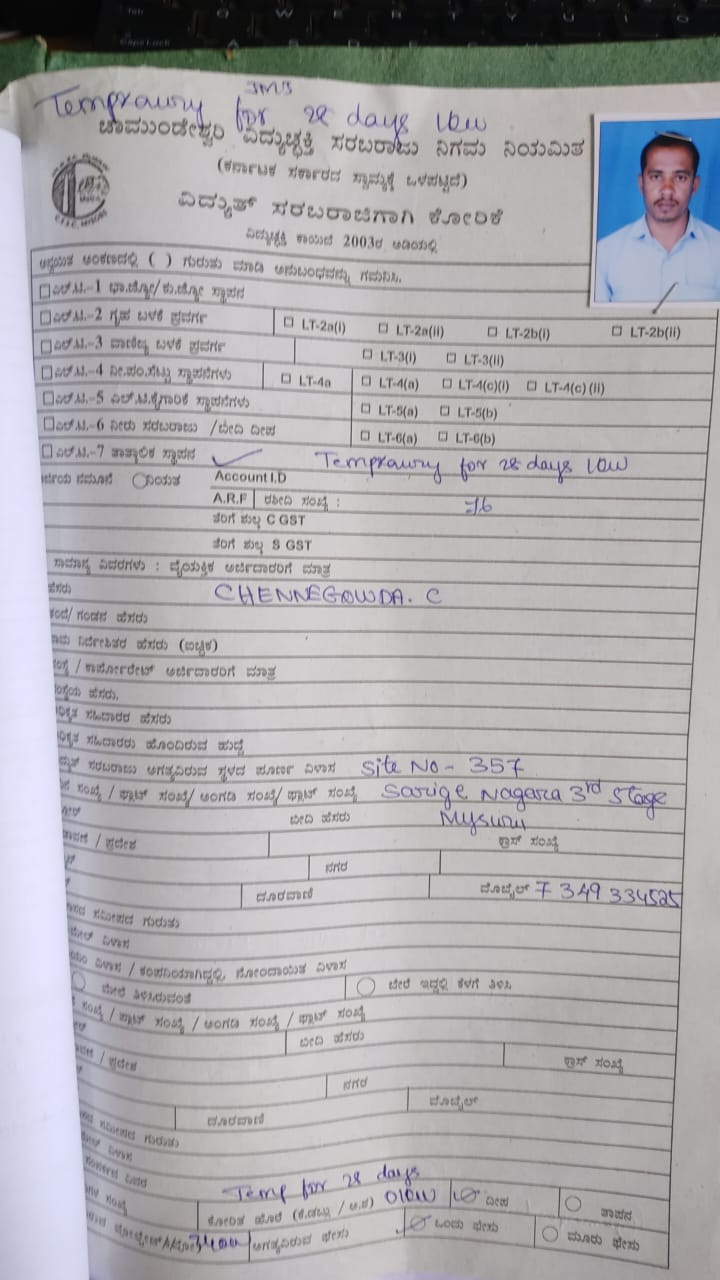 JMJ
Temprawry for 28 days
ಚಾಮುಂಡೇಶ್ವರಿ ವಿದ್ಯುಚ್ಛಕ್ತಿ ಸರಬರಾಜು ನಿಗಮ ನಿಯಮಿತ
(ಕರ್ನಾಟಕ ಸರ್ಕಾರದ ಸ್ವಾಮ್ಯಕ್ಕೆ ಒಳಪಟ್ಟಿದೆ)
ವಿದ್ಯುತ್ ಸರಬರಾಜಿಗಾಗಿ ಕೋರಿಕೆ
ವಿದ್ಯುಚ್ಛಕ್ತಿ ಕಾಯಿದೆ 2003ರ ಅಡಿಯಲ್ಲಿ
ಅಂಕಣದಲ್ಲಿ ( ) ಗುರುತು ಮಾಡಿ ಅನುಬಂಧವನ್ನು ಗಮನಿಸಿ.
ಎಲ್.ಟಿ.-1 ಭಾ.ಜ್ಯೋ/ಕು.ಜ್ಯೋ ಸ್ಥಾಪನ
ಎಲ್.ಟಿ.-2 ಗೃಹ ಬಳಕೆ ಪ್ರವರ್ಗ LT-2a(i) LT-2a(ii) LT-2b(i) LT-2b(ii)
ಎಲ್.ಟಿ.-3 ವಾಣಿಜ್ಯ ಬಳಕೆ ಪ್ರವರ್ಗ LT-3(i) LT-3(ii)
ಎಲ್.ಟಿ.-4 ನೀ.ಪಂ.ಸೆಟ್ಟು ಸ್ಥಾಪನೆಗಳು LT-4a LT-4(a) LT-4(c)(i) LT-4(c)(ii)
ಎಲ್.ಟಿ.-5 ಎಲ್.ಟಿ.ಕೈಗಾರಿಕೆ ಸ್ಥಾಪನೆಗಳು LT-5(a) LT-5(b)
ಎಲ್.ಟಿ.-6 ನೀರು ಸರಬರಾಜು /ಬೀದಿ ದೀಪ LT-6(a) LT-6(b)
ಎಲ್.ಟಿ.-7 ತಾತ್ಕಾಲಿಕ ಸ್ಥಾಪನ Temprawry for 28 days
ನಮೂನೆ ನಿಯತ Account I.D
A.R.F ರಶೀದಿ ಸಂಖ್ಯೆ :
ತೆರಿಗೆ ಶುಲ್ಕ C GST
ತೆರಿಗೆ ಶುಲ್ಕ S GST
ಸಾಮಾನ್ಯ ವಿವರಗಳು : ವೈಯಕ್ತಿಕ ಅರ್ಜಿದಾರರಿಗೆ ಮಾತ್ರ
ಹೆಸರು CHENNEGOWDA. C
ತಂದೆ/ ಗಂಡನ ಹೆಸರು
ನಿರ್ದೇಶಿತರ ಹೆಸರು (ಐಚ್ಛಿಕ)
ಸಂಸ್ಥೆ / ಕಾರ್ಪೋರೇಟ್ ಅರ್ಜಿದಾರರಿಗೆ ಮಾತ್ರ
ಸಂಸ್ಥೆಯ ಹೆಸರು.
ಸಹಿದಾರರ ಹೆಸರು
ಸಹಿದಾರರು ಹೊಂದಿರುವ ಹುದ್ದೆ
ಸರಬರಾಜು ಅಗತ್ಯವಿರುವ ಸ್ಥಳದ ಪೂರ್ಣ ವಿಳಾಸ Site No - 357
ಸಂಖ್ಯೆ / ಫ್ಲಾಟ್ ಸಂಖ್ಯೆ/ ಅಂಗಡಿ ಸಂಖ್ಯೆ/ ಪ್ಲಾಟ್ ಸಂಖ್ಯೆ Sarige Nagara 3rd Stage
ಬೀದಿ ಹೆಸರು Mysuru
/ ಪ್ರದೇಶ ಕ್ರಾಸ್ ಸಂಖ್ಯೆ
ನಗರ
ದೂರವಾಣಿ ಮೊಬೈಲ್ 7349334525
ಸಮೀಪದ ಗುರುತು
ವಿಳಾಸ
ವಿಳಾಸ / ಕಂಪನಿಯಾಗಿದ್ದಲ್ಲಿ, ನೋಂದಾಯಿತ ವಿಳಾಸ
ಮೇಲೆ ತಿಳಿಸಿರುವಂತೆ ಬೇರೆ ಇದ್ದಲ್ಲಿ ಕೆಳಗೆ ತಿಳಿಸಿ
ಸಂಖ್ಯೆ / ಫ್ಲಾಟ್ ಸಂಖ್ಯೆ / ಅಂಗಡಿ ಸಂಖ್ಯೆ / ಪ್ಲಾಟ್ ಸಂಖ್ಯೆ
ಬೀದಿ ಹೆಸರು
/ ಪ್ರದೇಶ ಕ್ರಾಸ್ ಸಂಖ್ಯೆ
ನಗರ
ದೂರವಾಣಿ ಮೊಬೈಲ್
ಸಮೀಪದ ಗುರುತು
ವಿಳಾಸ
Temp for 28 days
ಕೋರಿದ ಹೊರೆ ದೀಪ ತಾಪನ
3400 ಅಗತ್ಯವಿರುವ ಫೇಸು ಒಂದು ಫೇಸು ಮೂರು ಫೇಸು